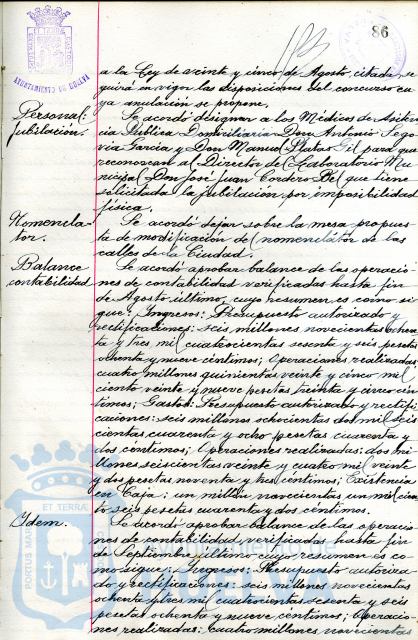 86
AYUNTAMIENTO DE HUELVA
a la Ley de veinte y cinco de Agosto, citada, se
guirá en vigor las disposiciones del concurso cu
ya anulación se propone.
Personal:
Jubilación.
Se acordó designar a los Médicos de Asisten
cia Pública Domiciliaria Don Antonio Sego
via García y Don Manuel Gil para que
reconozcan al Director del Laboratorio Mu
nicipal Don José Juan Cordero que tiene
solicitada la jubilación por imposibilidad
física.
Nomencla-
tor.
Se acordó dejar sobre la mesa propues
ta de modificación de nomenclátor de las
calles de la Ciudad.
Balance
contabilidad
Se acordó aprobar balance de las operacio
nes de contabilidad verificadas hasta fin
de Agosto último, cuyo resumen es como si
gue: Ingresos: Presupuesto autorizado y
rectificaciones: seis millones novecientas ochen
ta y tres mil cuatrocientas sesenta y seis pesetas
ochenta y nueve céntimos; Operaciones realizadas:
cuatro millones quinientas veinte y cinco mil
ciento veinte y nueve pesetas treinta y cinco cén
timos; Gastos: Presupuesto autorizado y rectifi
caciones: seis millones ochocientas dos mil seis
cientas cuarenta y ocho pesetas cuarenta y
dos céntimos; Operaciones realizadas: dos mi
llones seiscientas veinte y cuatro mil veinte
y dos pesetas noventa y tres céntimos; Existencia
en Caja: un millón novecientas un mil cien
to seis pesetas cuarenta y dos céntimos.
Idem.
Se acordó aprobar balance de las operacio
nes de contabilidad verificadas hasta fin
de Septiembre último, cuyo resumen es co
mo sigue: Ingresos: Presupuesto autoriza
do y rectificaciones: seis millones novecientas
ochenta y tres mil cuatrocientas sesenta y seis
pesetas ochenta y nueve céntimos; Operacio
nes realizadas: cuatro millones novecientas
PORTUS MARIS ET TERRAE
HUELVA